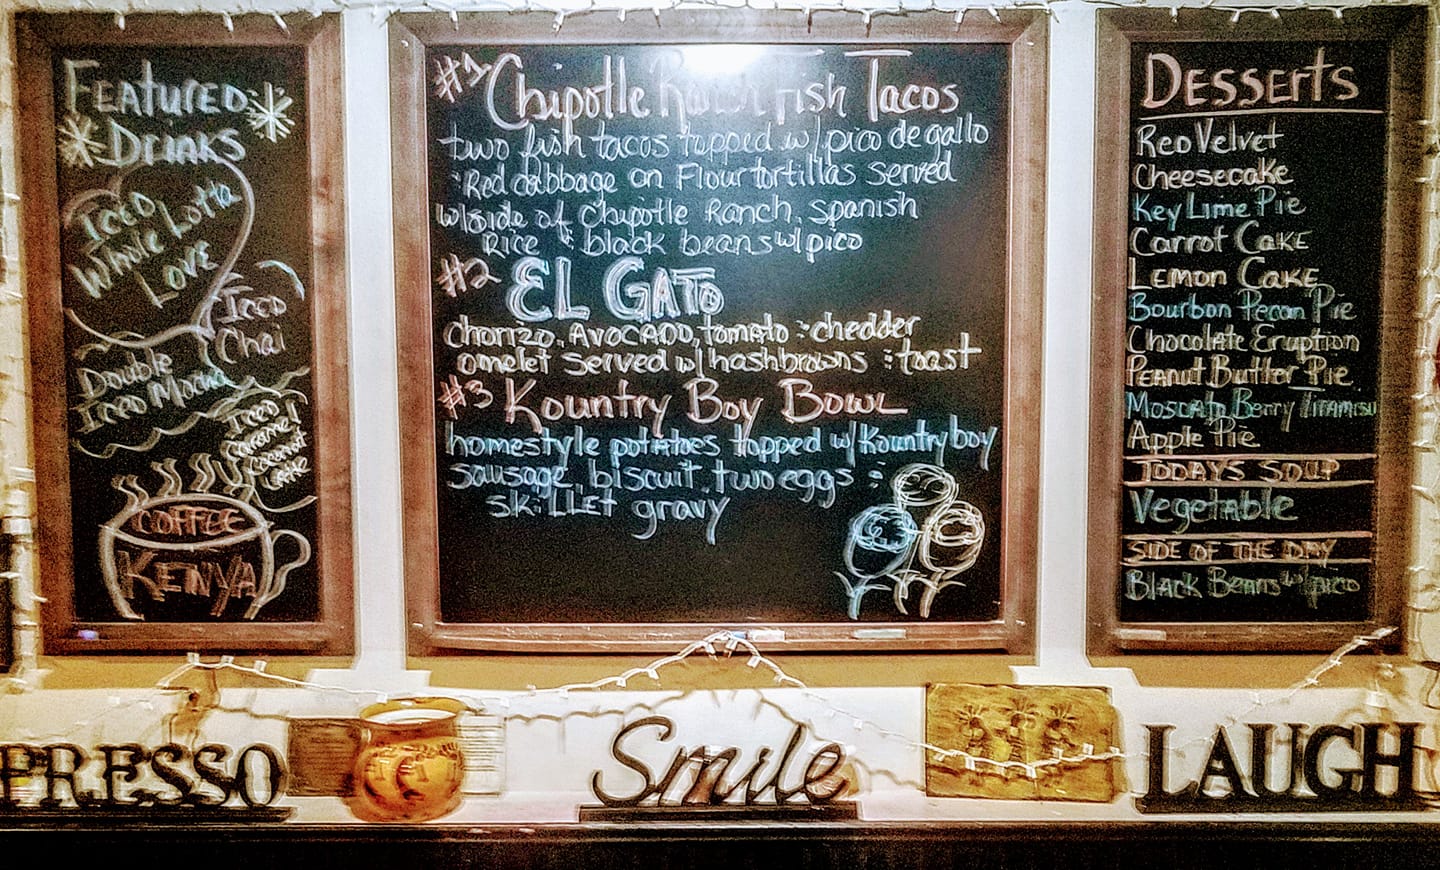 FEATURED
DRINKS
ICED
Whole Lotta
Love
Iced
Chai
Double
Iced Mocha
Iced
Caramel
Coconut
Latte
COFFEE
KENYA
#1 Chipotle Ranch Fish Tacos
two fish tacos topped w/ pico de gallo
: Red cabbage on Flour tortillas served
w/ side of Chipotle Ranch, Spanish
Rice & black beans w/ pico
#2 EL GATO
chorizo, AVOCADO, tomato : chedder
omelet served w/ hashbrowns : toast
#3 Kountry Boy Bowl
homestyle potatoes topped w/ Kountry boy
sausage, biscuit, two eggs :
skillet gravy
DESSERTS
Red Velvet
Cheesecake
Key Lime Pie
Carrot Cake
Lemon Cake
Bourbon Pecan Pie
Chocolate Eruption
Peanut Butter Pie
Moscato Berry Tiramisu
Apple Pie
TODAYS SOUP
Vegetable
SIDE OF THE DAY
Black Beans w/ pico
PRESSO
Smile
LAUGH